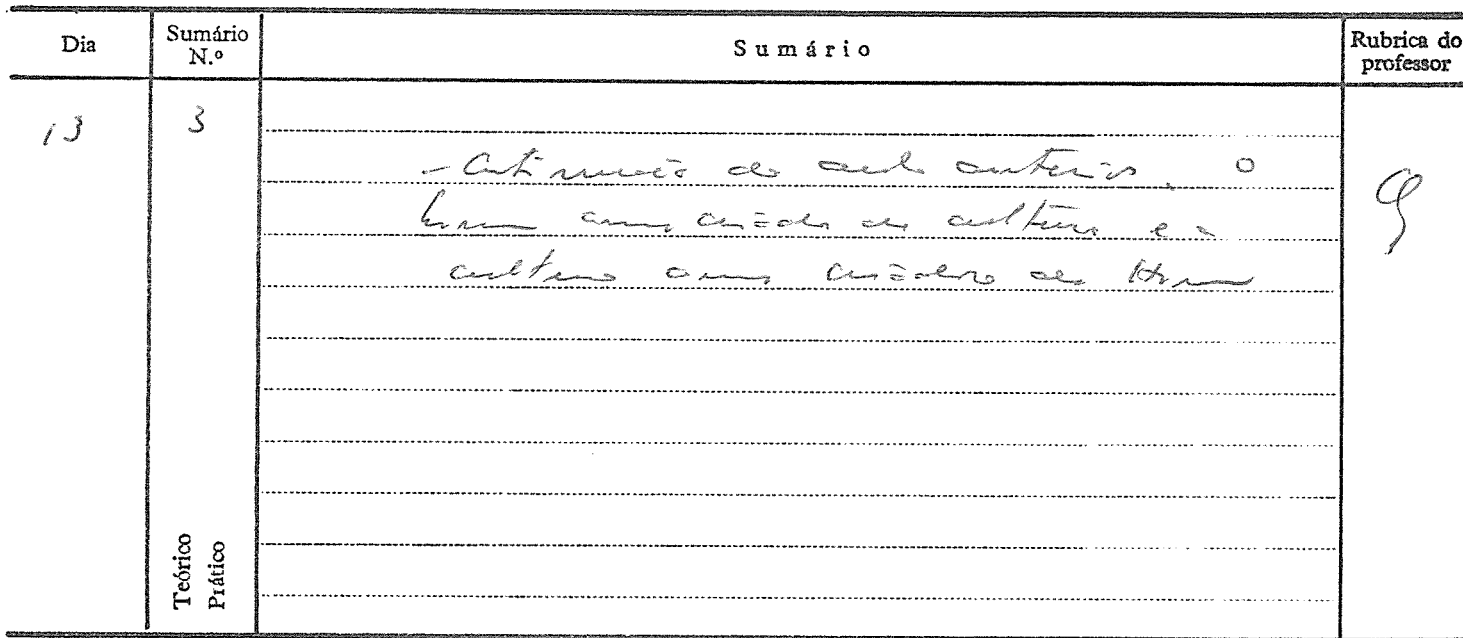 Dia
Sumário N.º
Sumário
Rubrica do professor
13
3
- Continuação da aula anterior. O
homem como criador da cultura e a
cultura como criadora do Homem
Teórico
Prático